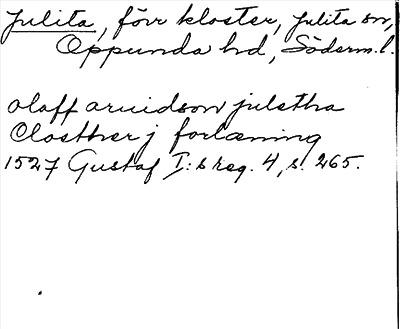 Julita, förr kloster, Julita sn,
Oppunda hd, Söderm. l.
olaff aruidson juletha
Closther j forlæning
1527 Gustaf I:s reg. 4, s. 265.